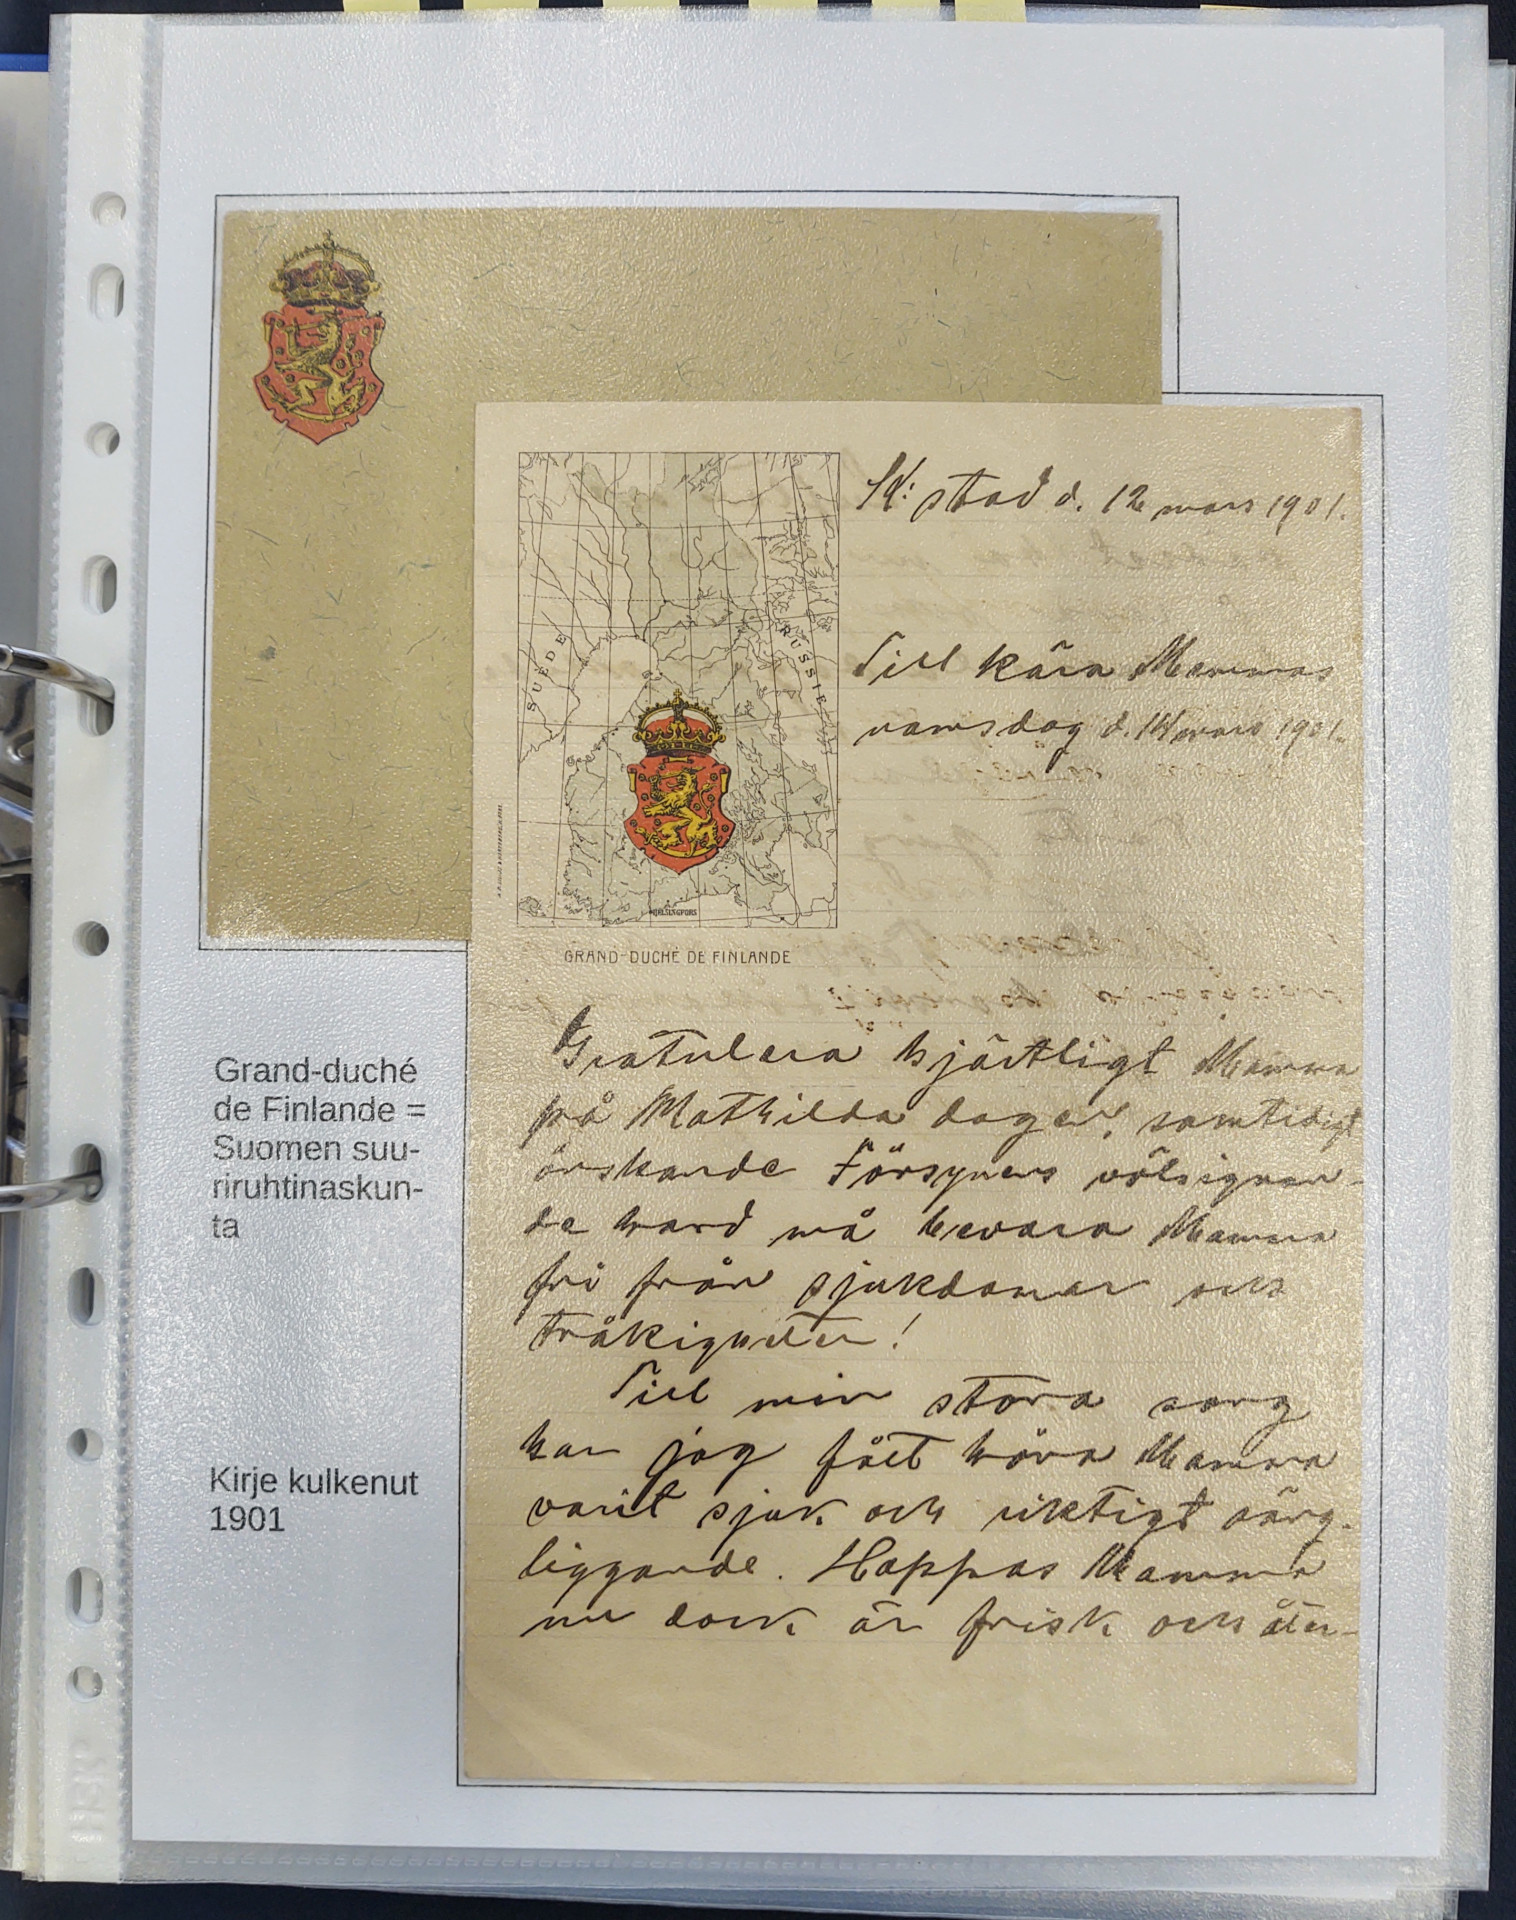 K: stad d. 12 mars 1901.
Till kära Mammas
namsdag d. 14 mars 1901.
SUÈDE
RUSSIE
HELSINGFORS
GRAND-DUCHÉ DE FINLANDE
Gratulera hjärtligt Mamma
på Mathilda dagen, samtidigt
önskande Försynens välsignan-
de hand må bevara Mamma
fri från sjukdomar och
tråkigheter!
Till min stora sorg
har jag fått höra Mamma
varit sjuk och riktigt säng-
liggande. Hoppas Mamma
nu dock är frisk och åter-
Grand-duché
de Finlande =
Suomen suu-
riruhtinaskun-
ta
Kirje kulkenut
1901